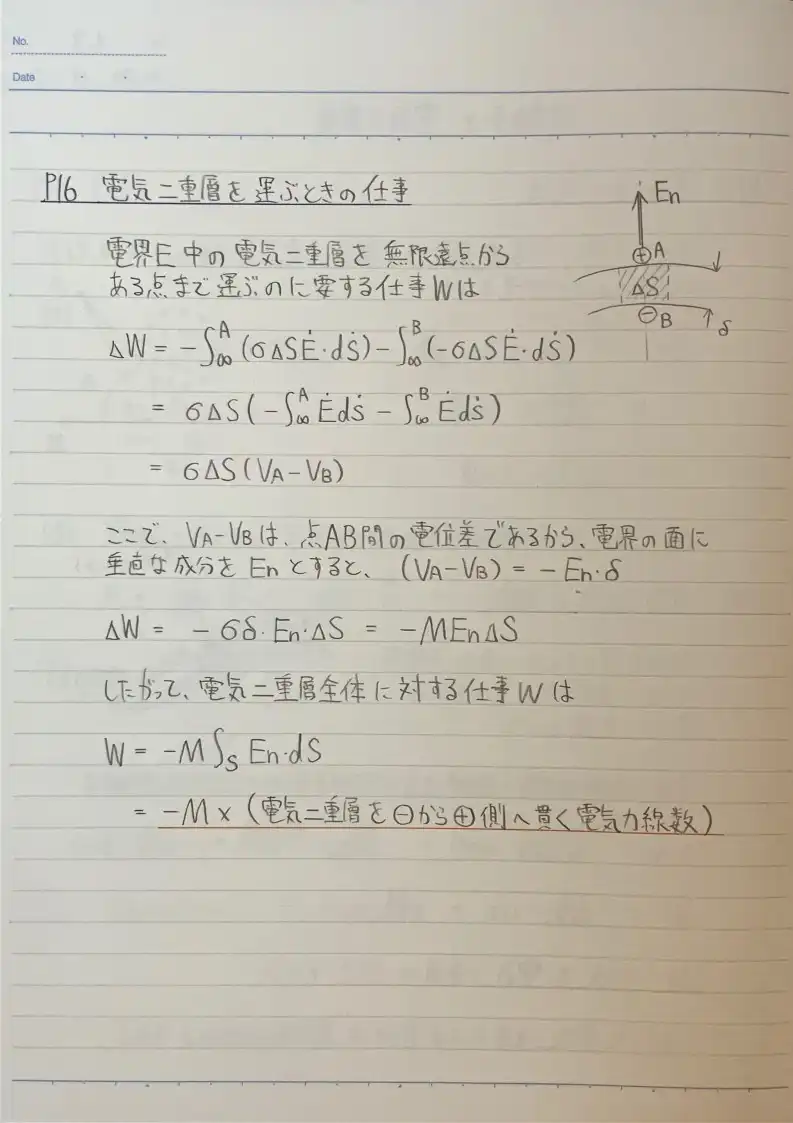 No.
Date
P16 電気二重層を運ぶときの仕事
En
⊕A
ΔS
⊖B
δ
電界E中の電気二重層を無限遠点から
ある点まで運ぶのに要する仕事Wは
ΔW = -∫∞^A (σΔSĖ・dṡ) - ∫∞^B (-σΔSĖ・dṡ)
= σΔS(-∫∞^A Ėdṡ - ∫∞^B Ėdṡ)
= σΔS(VA-VB)
ここで、VA-VBは、点AB間の電位差であるから、電界の面に
垂直な成分をEnとすると、(VA-VB) = -En・δ
ΔW = -σδ・En・ΔS = -MEnΔS
したがって、電気二重層全体に対する仕事Wは
W = -M∫s En・dS
= -M×(電気二重層を⊖から⊕側へ貫く電気力線数)